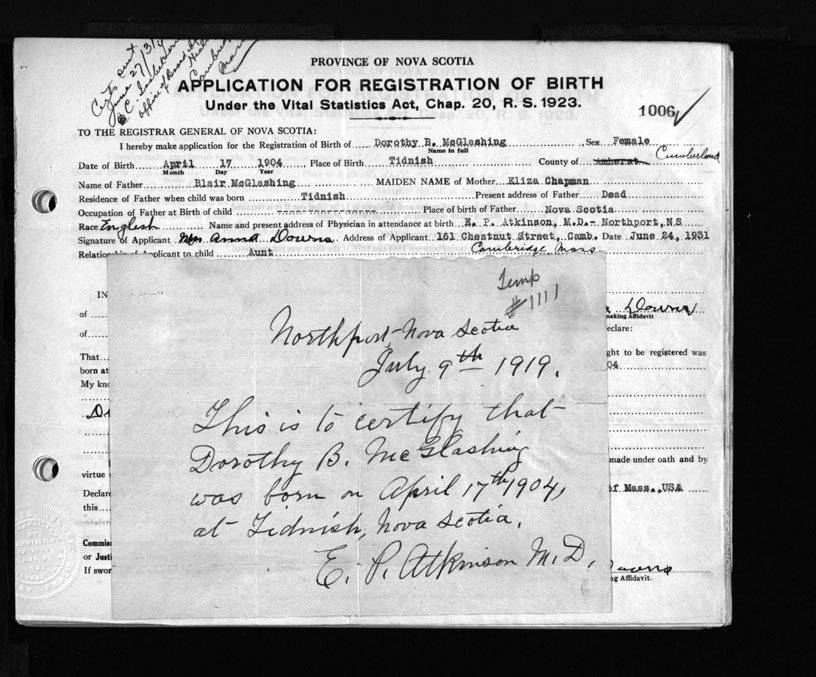 PROVINCE OF NOVA SCOTIA
APPLICATION FOR REGISTRATION OF BIRTH
Under the Vital Statistics Act, Chap. 20, R. S. 1923.
1006
June 27/31
Office of
TO THE REGISTRAR GENERAL OF NOVA SCOTIA:
I hereby make application for the Registration of Birth of Dorothy B. McGlashing Sex Female
Name in full
Date of Birth April 17 1904 Place of Birth Tidnish County of Amherst Cumberland
Month Day Year
Name of Father Blair McGlashing MAIDEN NAME of Mother Eliza Chapman
Residence of Father when child was born Tidnish Present address of Father Dead
Occupation of Father at Birth of child Place of birth of Father Nova Scotia
Race English Name and present address of Physician in attendance at birth E. P. Atkinson, M.D.- Northport,NS
Signature of Applicant Mrs Anna Downs Address of Applicant 161 Chestnut Street, Camb. Date June 24, 1931
Relationship of Applicant to child Aunt Cambridge Mass
Temp
#1111
Northport, Nova Scotia
July 9th 1919.
This is to certify that
Dorothy B. McGlashing
was born on April 17th 1904,
at Tidnish, Nova Scotia.
E. P. Atkinson M.D.
IN
of Downs
making Affidavit
of declare:
That ght to be registered was
born at 04
My kno
made under oath and by
virtue
Declare of Mass.,USA
this
Commis
or Justi
If swor ng Affidavit.